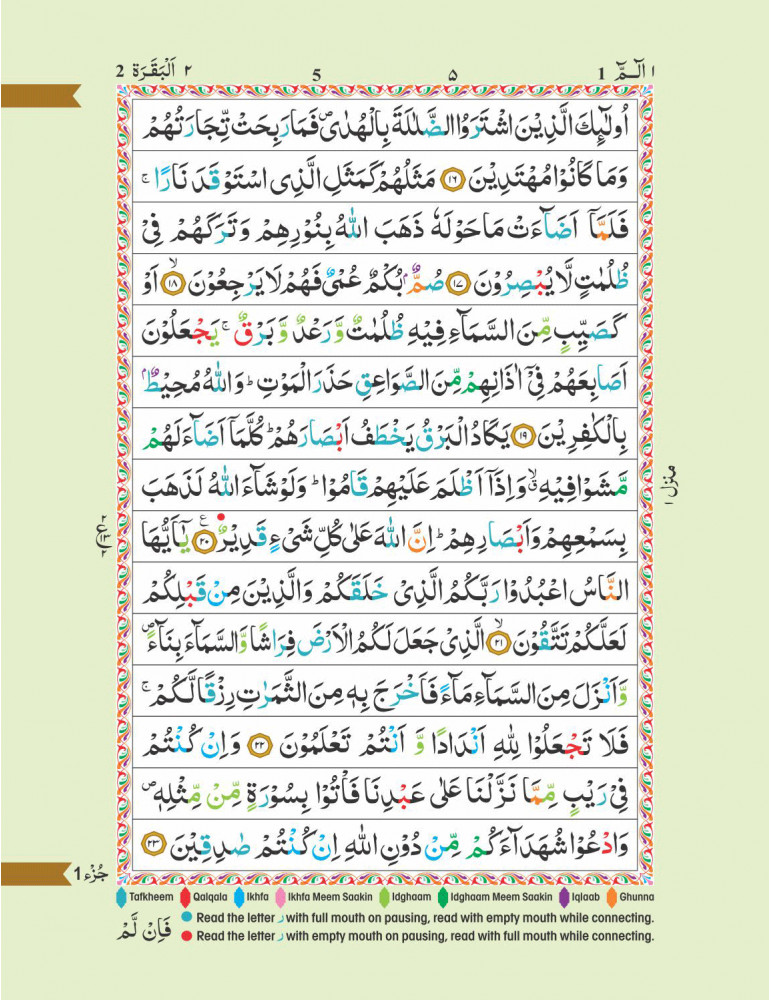 ١ الٓـمّٓ 1 ۵ 5 ٢ اَلْبَقَرَة 2
اُولٰٓئِكَ الَّذِيْنَ اشْتَرَوُا الضَّلٰلَةَ بِالْهُدٰىۖ فَمَا رَبِحَتْ تِّجَارَتُهُمْ
وَمَا كَانُوْا مُهْتَدِيْنَ ١٦ مَثَلُهُمْ كَمَثَلِ الَّذِى اسْتَوْقَدَ نَارًاۚ
فَلَمَّآ اَضَآءَتْ مَا حَوْلَهٗ ذَهَبَ اللّٰهُ بِنُوْرِهِمْ وَتَرَكَهُمْ فِىْ
ظُلُمٰتٍ لَّا يُبْصِرُوْنَ ١٧ صُمٌّۢ بُكْمٌ عُمْىٌ فَهُمْ لَا يَرْجِعُوْنَۙ ١٨ اَوْ
كَصَيِّبٍ مِّنَ السَّمَآءِ فِيْهِ ظُلُمٰتٌ وَّرَعْدٌ وَّبَرْقٌۚ يَجْعَلُوْنَ
اَصَابِعَهُمْ فِىْٓ اٰذَانِهِمْ مِّنَ الصَّوَاعِقِ حَذَرَ الْمَوْتِؕ وَاللّٰهُ مُحِيْطٌۢ
بِالْكٰفِرِيْنَ ١٩ يَكَادُ الْبَرْقُ يَخْطَفُ اَبْصَارَهُمْؕ كُلَّمَآ اَضَآءَ لَهُمْ
مَّشَوْا فِيْهِۙ وَاِذَآ اَظْلَمَ عَلَيْهِمْ قَامُوْاؕ وَلَوْ شَآءَ اللّٰهُ لَذَهَبَ
بِسَمْعِهِمْ وَاَبْصَارِهِمْؕ اِنَّ اللّٰهَ عَلٰى كُلِّ شَىْءٍ قَدِيْرٌ ٢٠ ع يٰٓاَيُّهَا
النَّاسُ اعْبُدُوْا رَبَّكُمُ الَّذِىْ خَلَقَكُمْ وَالَّذِيْنَ مِنْ قَبْلِكُمْ
لَعَلَّكُمْ تَتَّقُوْنَۙ ٢١ الَّذِىْ جَعَلَ لَكُمُ الْاَرْضَ فِرَاشًا وَّالسَّمَآءَ بِنَآءًۖ
وَّاَنْزَلَ مِنَ السَّمَآءِ مَآءً فَاَخْرَجَ بِهٖ مِنَ الثَّمَرٰتِ رِزْقًا لَّكُمْۚ
فَلَا تَجْعَلُوْا لِلّٰهِ اَنْدَادًا وَّ اَنْتُمْ تَعْلَمُوْنَ ٢٢ وَاِنْ کُنْتُمْ
فِىْ رَيْبٍ مِّمَّا نَزَّلْنَا عَلٰى عَبْدِنَا فَاْتُوْا بِسُوْرَةٍ مِّنْ مِّثْلِهٖۖ
وَادْعُوْا شُهَدَآءَكُمْ مِّنْ دُوْنِ اللّٰهِ اِنْ كُنْتُمْ صٰدِقِيْنَ ٢٣
منزل ١
٢ ع ١٣ ٢
جُزْء 1
Tafkheem Qalqala Ikhfa Ikhfa Meem Saakin Idghaam Idghaam Meem Saakin Iqlaab Ghunna
Read the letter ر with full mouth on pausing, read with empty mouth while connecting.
Read the letter ر with empty mouth on pausing, read with full mouth while connecting.
فَاِنْ لَّمْ